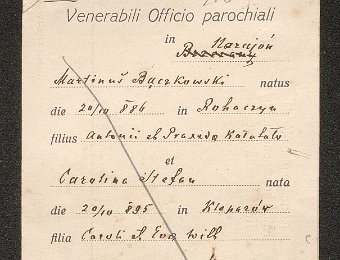 Venerabili Officio parochiali
in Narajów
Martinus Bączkowski natus
die 20/IV 886 in Rohaczyn
filius Antonii et Praxeda Katalato
et
Carolina Stefan nata
die 20/IV 895 in Kleparów
filia Caroli et Eva Will